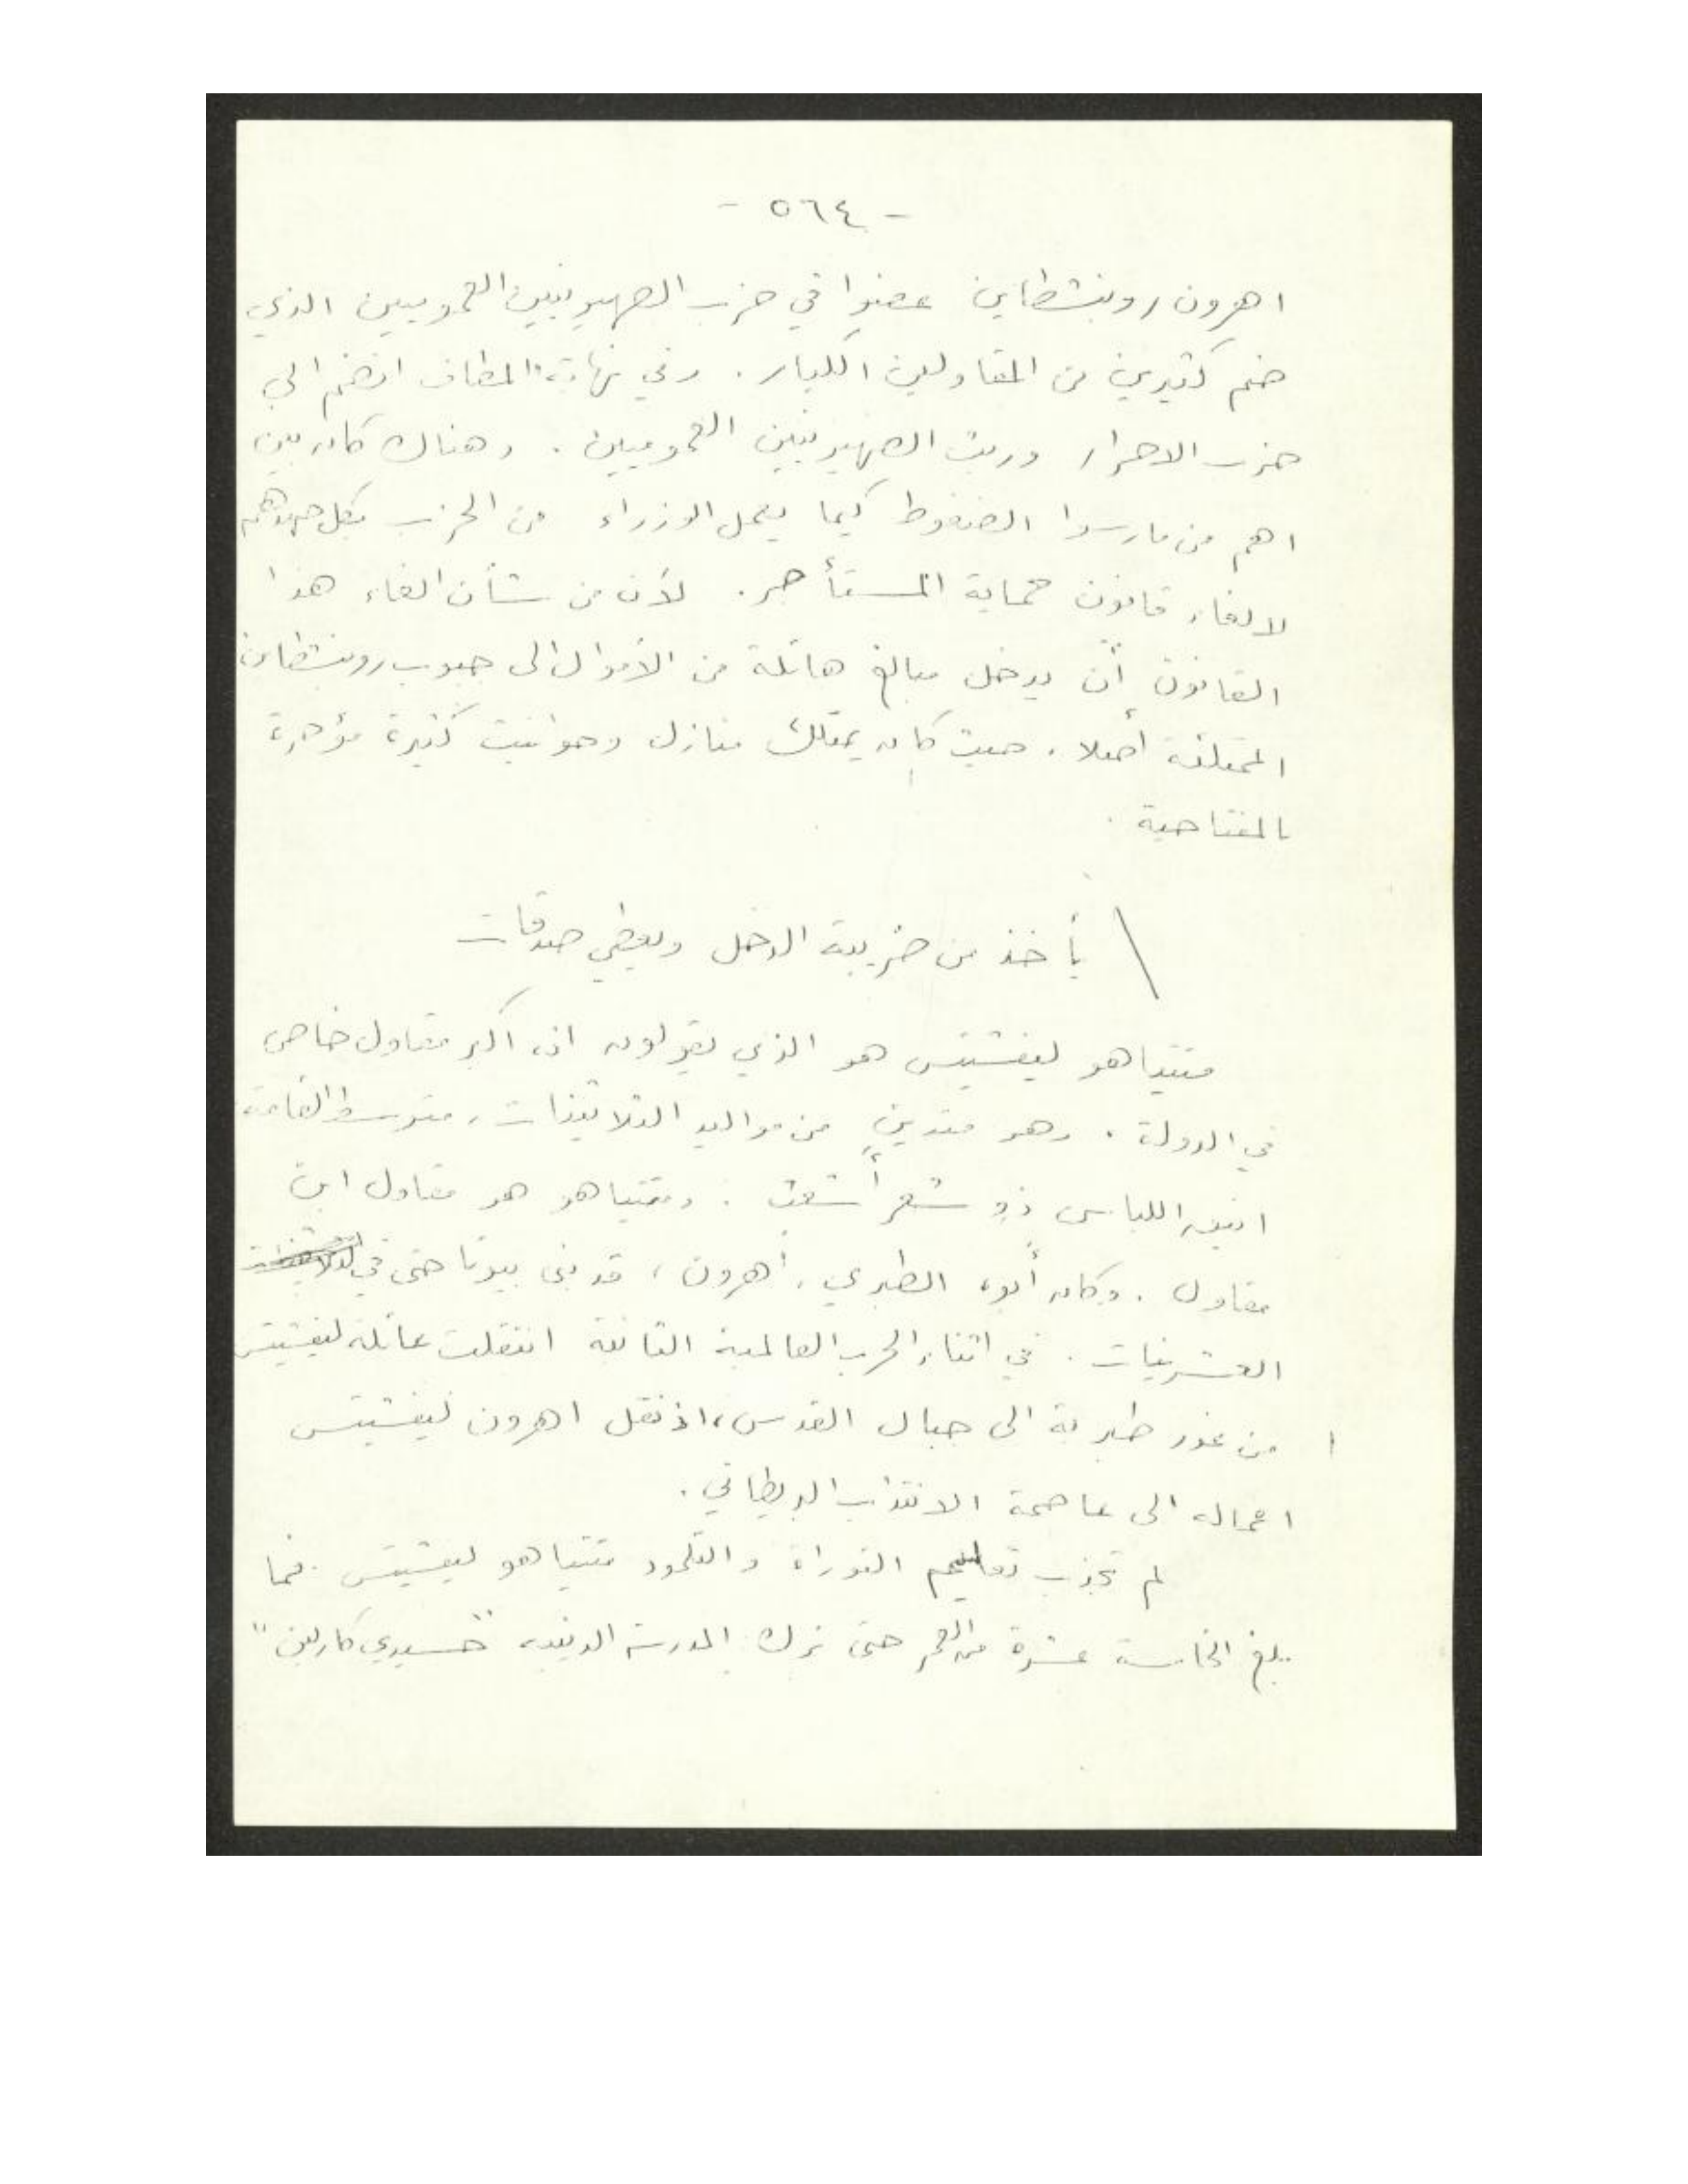 - ٥٦٤ -
اهرون روبنشطاين عضوا في حزب الصهيونيين العموميين الذي
ضم كثيرين من المقاولين الكبار. وفي نهاية المطاف انضم الى
حزب الاحرار وريث الصهيونيين العموميين. وهناك كان بين
اهم من مارسوا الضغوط كيما يعمل الوزراء من الحزب بكل جهودهم
لالغاء قانون حماية المستأجر. لأن من شأن الغاء هذا
القانون أن يدخل مبالغ هائلة من الأموال الى جيوب روبنشطاين
الممتلئة أصلا، حيث كان يمتلك منازل وحوانيت كثيرة مؤجرة
بالمفتاحية.
يأخذ من ضريبة الدخل ويعطي صدقات
متتياهو ليفشيتس هو الذي يقولون انه اكبر مقاول خاص
في الدولة. وهو متدين من مواليد الثلاثينات، متوسط القامة
انيق اللباس ذو شعر أشعث. ومتتياهو هو مقاول ابن
مقاول. وكان أبوه الطبري، أهرون، قد بنى بيوتا حتى في
العشرينات. في اثناء الحرب العالمية الثانية انتقلت عائلة ليفشيتس
من غور طبرية الى جبال القدس، اذ نقل اهرون ليفشيتس
اعماله الى عاصمة الانتداب البريطاني.
لم تجذب تعاليم التوراة والتلمود متتياهو ليفشيتس. فما
بلغ الخامسة عشرة من العمر حتى ترك المدرسة الدينية "حسيدي كارلين"